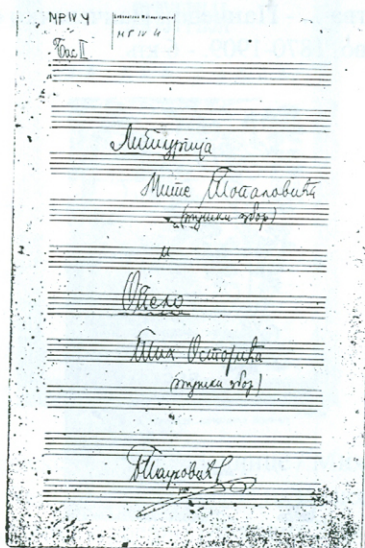 МР IV 4
МР IV 4
Бас II
Литургија
Мите Топаловића
(мушки збор)
и
Опело
Тих. Остојића
(мушки збор)